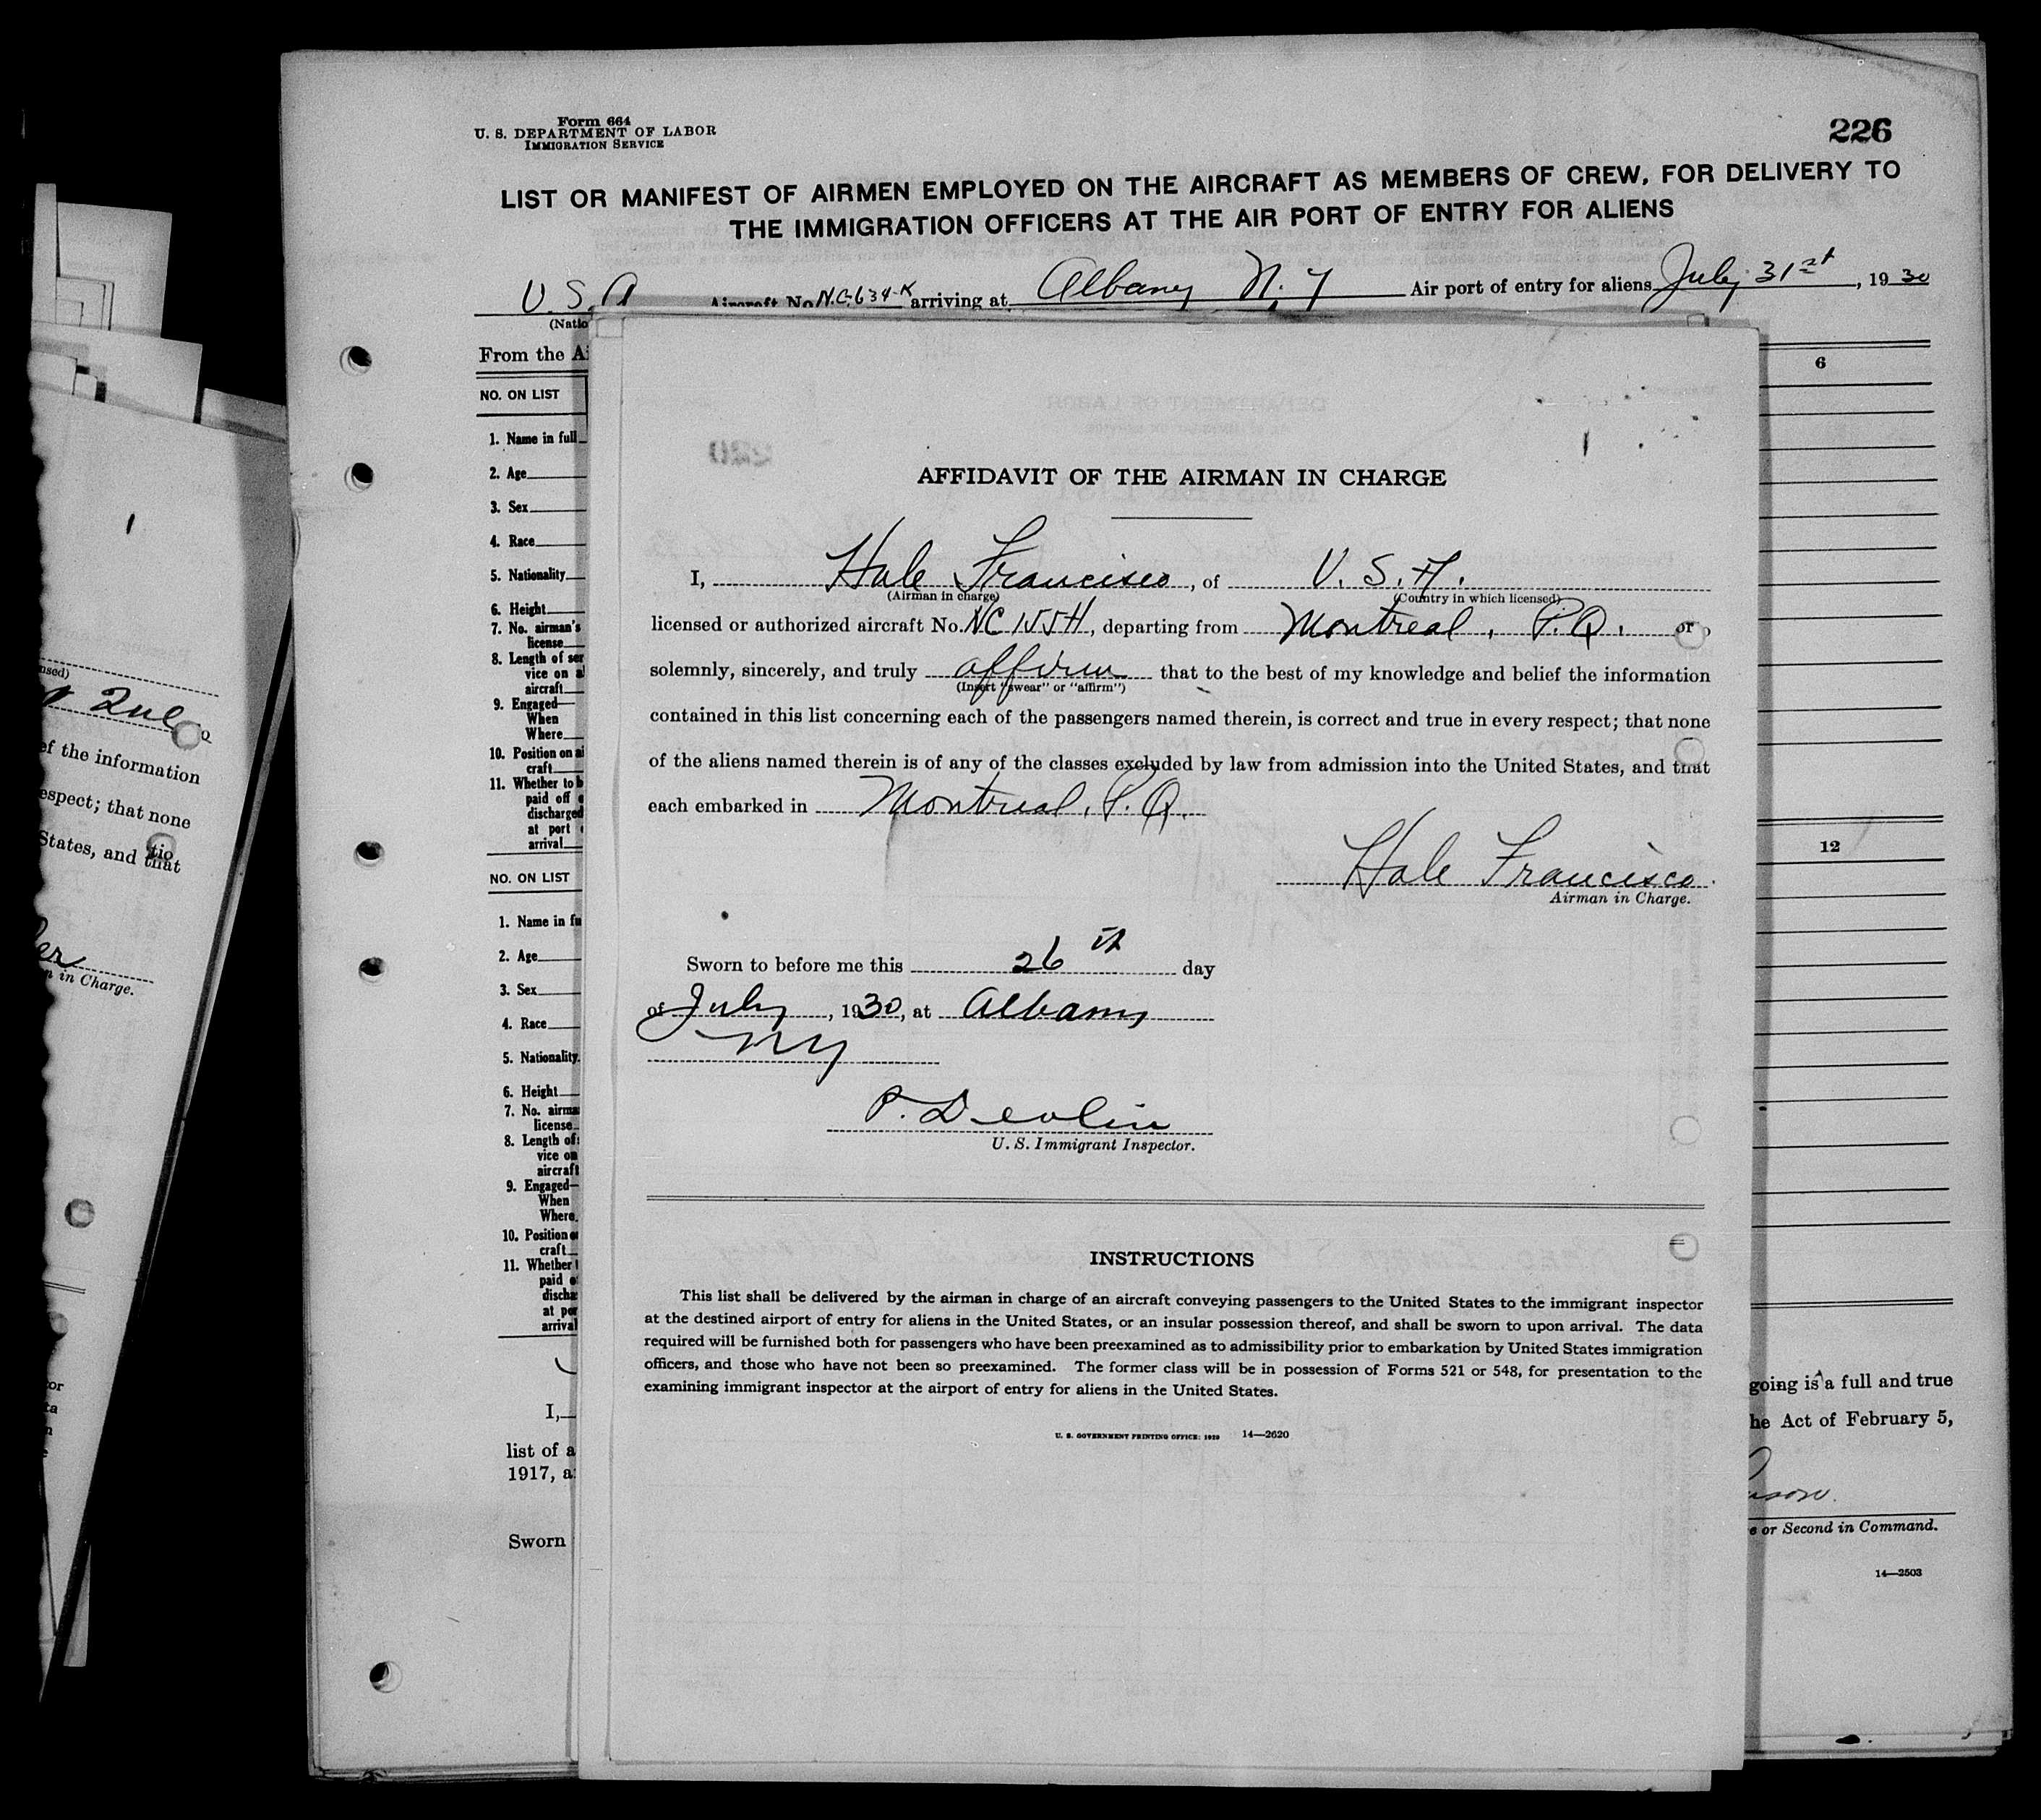 Form 664
U. S. DEPARTMENT OF LABOR
IMMIGRATION SERVICE
226
LIST OR MANIFEST OF AIRMEN EMPLOYED ON THE AIRCRAFT AS MEMBERS OF CREW, FOR DELIVERY TO
THE IMMIGRATION OFFICERS AT THE AIR PORT OF ENTRY FOR ALIENS
U. S. A Aircraft No. NC634-K arriving at Albany N. Y Air port of entry for aliens July 31st, 1930
(Natio
From the Ai
6
NO. ON LIST
1. Name in full
2. Age
3. Sex
4. Race
5. Nationality
6. Height
7. No. airman's
license
8. Length of ser
vice on a
aircraft
9. Engaged—
When
Where
10. Position on ai
craft
11. Whether to b
paid off
discharged
at port
arrival
12
NO. ON LIST
1. Name in fu
2. Age
3. Sex
4. Race
5. Nationality
6. Height
7. No. airma
license
8. Length of
vice on
aircraft
9. Engaged—
When
Where
10. Position
craft
11. Whether
paid
discha
at por
arrival
I,
list of a
1917, a
Sworn
going is a full and true
he Act of February 5,
e or Second in Command.
14—2503
AFFIDAVIT OF THE AIRMAN IN CHARGE
I, Hale Francisco, of U. S. A.
(Airman in charge) (Country in which licensed)
licensed or authorized aircraft No. NC155H, departing from Montreal, P.Q. or
solemnly, sincerely, and truly affirm that to the best of my knowledge and belief the information
(Insert "swear" or "affirm")
contained in this list concerning each of the passengers named therein, is correct and true in every respect; that none
of the aliens named therein is of any of the classes excluded by law from admission into the United States, and that
each embarked in Montreal, P. Q.
Hale Francisco.
Airman in Charge.
Sworn to before me this 26th day
of July, 1930, at Albany
NY
P. Devlin
U. S. Immigrant Inspector.
INSTRUCTIONS
This list shall be delivered by the airman in charge of an aircraft conveying passengers to the United States to the immigrant inspector
at the destined airport of entry for aliens in the United States, or an insular possession thereof, and shall be sworn to upon arrival. The data
required will be furnished both for passengers who have been preexamined as to admissibility prior to embarkation by United States immigration
officers, and those who have not been so preexamined. The former class will be in possession of Forms 521 or 548, for presentation to the
examining immigrant inspector at the airport of entry for aliens in the United States.
U. S. GOVERNMENT PRINTING OFFICE: 1929 14—2620
nsed)
ef the information
espect; that none
States, and that
n in Charge.